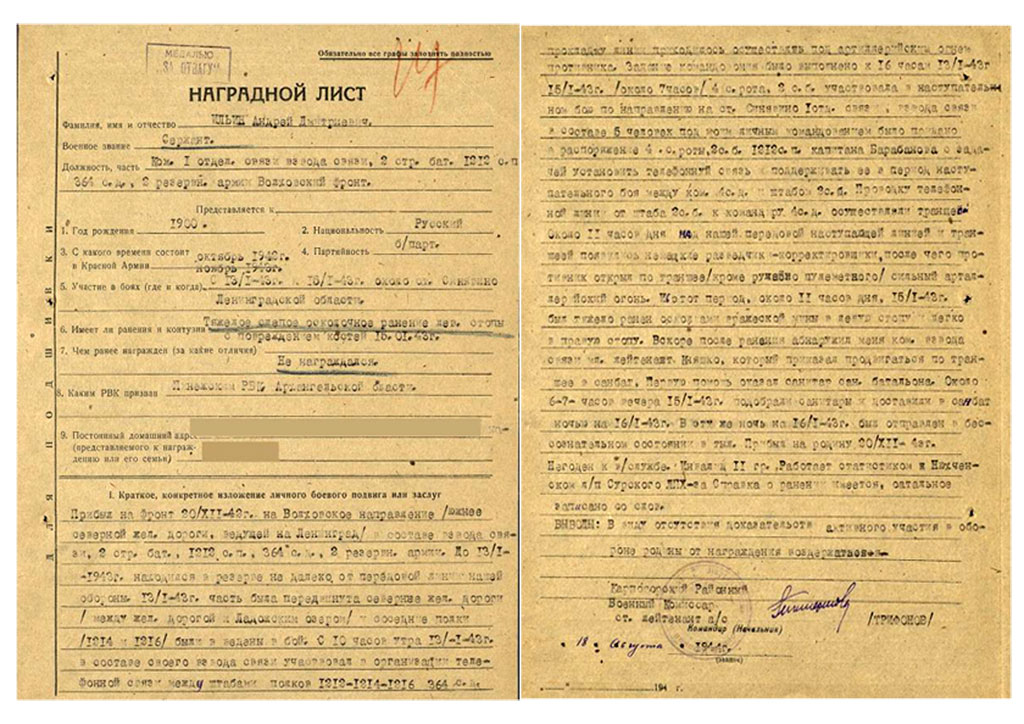 МЕДАЛЬЮ
"ЗА ОТВАГУ"
Обязательно все графы заполнять полностью
НАГРАДНОЙ ЛИСТ
Фамилия, имя и отчество ИЛЬИН Андрей Дмитриевич.
Военное звание Сержант.
Должность, часть Ком. I отдел. связи взвода связи, 2 стр. бат. 1212 с.п
364 с.д., 2 резерв. армии Волховский фронт.
Представляется к
1. Год рождения 1900. 2. Национальность Русский
3. С какого времени состоит октябрь 1942г. 4. Партийность б/парт.
в Красной Армии ноябрь
5. Участие в боях (где и когда) С 13/I-43г. и 15/I-43г. около ст. Синявино
Ленинградской области.
6. Имеет ли ранения и контузии Тяжелое слепое осколочное ранение лев. стопы
с повреждением костей 15.01.43г.
7. Чем ранее награжден (за какие отличия)
Не награждался.
8. Каким РВК призван Пинежским РВК, Архангельской бласти.
9. Постоянный домашний адрес
(представляемого к награж-
дению или его семьи)
ДЛЯ ПОДШИВКИ
I. Краткое, конкретное изложение личного боевого подвига или заслуг
Прибыл на фронт 20/XII-42г. на Волховское направление /южнее
северной жел. дороги, ведущей на Ленинград/ в составе взвода свя-
зи, 2 стр. бат., 1212 с.п., 364 с.д., 2 резерв. армии. До 13/I-
-1943г. находился в резерве не далеко от передовой линии нашей
обороны. 13/I-43г. часть была передвинута севернее жел. дороги
/между жел. дорогой и Ладожским озером/ и соседние полки
/1214 и 1216/ были в ведены в бой. С 10 часов утра 13/-I-43г.
в составе своего взвода связи участвовал в организации теле-
фонной связи между штабами полков 1212-1214-1216 364 с.д.
прокладку линии приходилось осуществлять под артиллерийским огнем
противника. Задание командования было выполнено к 16 часам 13/I-43г
15/I-43г. /около 7часов/ 4 с.рота, 2 с.б. участвовала в наступательн
ном бою по направлению на ст. Синявино Iотд. связи, взвода связи
в составе 5 человек под моим личным командованием было придано
в распоряжение 4 с.роты,2с.б. 1212с.п. капитана Барабанова с зада-
чей установить телефонную связь и поддерживать ее в период насту-
пательного боя между ком. 4с.д. и штабом 2с.б. Проводку телефон-
ной линии от штаба 2с.б. к команд ру 4с.д. осуществляли траншей
Около II часов дня над нашей передовой наступающей линией и тран-
шеей появились немецкие разведчики-корректировщики,после чего про-
тивник открыл по траншее/кроме ружейно пулеметного/ сильный артал-
лерийский огонь. в этот период, около II часов дня, 15/I-43г.
был тяжело ранен осколками вражеской мины в левую стопу и легко
в правую стопу. Вскоре после ранения обнаружил меня ком. взвода
связи мл. лейтенант который приказал продвигаться по тран-
шее в санбат. Первую помощь оказал санитар сан. батальона. Около
6-7- часов вечера 15/I-43г. подобрали санитары и доставили в санбат
ночью на 16/I-43г. В эту же ночь на 16/I-43г. был отправлен в бес-
сознательном состоянии в тыл. Прибыл на родину 20/XII- 43г.
Негоден к в/службе. Инвалид II гр. Работает статистиком в Нюхчен-
ском л/п Сурского ЛПХ-за Справка о ранении имеется, остальное
записано со слов.
ВЫВОДЫ: В виду отсутствия доказательств активного участия в обо-
роне родины от награждения воздержаться.
Карпогорский Районный
Военный Комиссар
ст. лейтенант а/с /ТРИФОНОВ/
Командир (Начальник)
"18" Августа 1944г.
194 г.